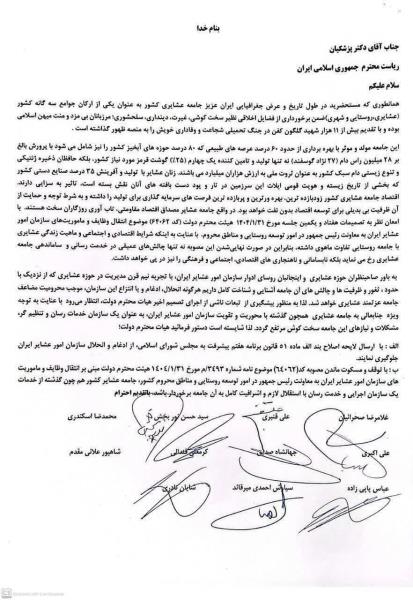 بنام خدا
جناب آقای دکتر پزشکیان
ریاست محترم جمهوری اسلامی ایران
سلام علیکم
همانطوری که مستحضرید در طول تاریخ و عرض جغرافیایی ایران عزیز جامعه عشایری کشور به عنوان یکی از ارکان جوامع سه گانه کشور
(عشایری،روستایی و شهری)ضمن برخورداری از فضایل اخلاقی نظیر سخت کوشی، غیرت، دینداری، سلحشوری؛ مرزبانان بی مزد و منت میهن اسلامی
بوده و با تقدیم بیش از ۱۱ هزار شهید گلگون کفن در جنگ تحمیلی شجاعت و وفاداری خویش را به منصه ظهور گذاشته است.
این جامعه مولد و موثر با بهره برداری از حدود ۶۰ درصد عرصه های طبیعی که ۸۰ درصد حوزه های آبخیز کشور را نیز شامل می شود با پرورش بالغ
بر ۲۸ میلیون راس دام (۲۷ نژاد گوسفند) نه تنها تولید و تامین کننده یک چهارم (۲۵٪) گوشت قرمز مورد نیاز کشور، بلکه حافظان ذخیره ژنتیکی
و تنوع زیستی دامی سبک کشور به عنوان ثروت ملی به ارزش هزاران میلیارد می باشند. زنان عشایر با تولید و آفرینش ۳۵ درصد صنایع دستی کشور
که بخشی از تاریخ زیسته و هویت قومی ایلات این سرزمین در تار و پود دست بافته های آنان نقش بسته است، تاثیر به سزایی دارند.
اقتصاد جامعه عشایری کشور زودبازده ترین، بهره ورترین و پربازده ترین فرصت های سرمایه گذاری برای تولید را داشته و به شرط توجه و حمایت از
آن ظرفیت بی بدیلی برای توسعه اقتصاد بدون نفت خواهد بود. در واقع جامعه عشایر مصداق اقتصاد مقاومتی، تاب آوری روزگاران سخت هستند. با
امعان نظر به تصمیمات هفتاد و یکمین جلسه مورخ ۱۴۰۴/۱/۳۱ هیئت محترم دولت (کد ۶۴۰۶۲) موضوع انتقال وظایف و ماموریت‌های سازمان امور
عشایر ایران به معاونت رئیس جمهور در امور توسعه روستایی و مناطق محروم. با عنایت به اینکه شرایط اقتصادی و اجتماعی و ماهیت زندگی عشایری
با جامعه روستایی تفاوت ماهوی داشته، بنابراین در صورت نهایی‌شدن این مصوبه نه تنها چالش‌های عمیقی در خدمت رسانی و ساماندهی جامعه
عشایری رخ می نماید بلکه نابسامانی و ناهنجاری های اقتصادی، اجتماعی و فرهنگی را نیز در پی خواهد داشت.
به باور صاحبنظران حوزه عشایری و اینجانبان روسای ادوار سازمان امور عشایر ایران، با تجربه نیم قرن مدیریت در حوزه عشایری که از نزدیک با
حدود، ثغور و ظرفیت ها و چالش های آن جامعه آشنایی و شناخت کامل داریم هرگونه انحلال، ادغام و یا انتزاع این سازمان، موجب محرومیت مضاعف
جامعه عزتمند عشایری خواهد شد. لذا به منظور پیشگیری از تبعات ناشی از اجرای تصمیم اخیر هیات محترم دولت، انتظار می‌رود با عنایت به توجه
ویژه جنابعالی به جامعه عشایری همچون گذشته با محوریت و تقویت سازمان امور عشایر ایران، به عنوان یک سازمان خدمات رسان و تنظیم گر،
مشکلات و نیازهای این جامعه سخت کوش مرتفع گردد. لذا شایسته است دستور فرمائید هیات محترم دولت؛
الف : با ارسال لایحه اصلاح بند الف ماده ۵۱ قانون برنامه هفتم پیشرفت به مجلس شورای اسلامی، از ادغام و انحلال سازمان امور عشایر ایران
جلوگیری نمایند.
ب : با توقف و مسکوت ماندن مصوبه کد(۶۴۰۶۲) موضوع نامه شماره ۳۴۹۳/م مورخ ۱۴۰۴/۱/۳۱ هیئت محترم دولت مبنی بر انتقال وظایف و ماموریت
های سازمان امور عشایر ایران به معاونت رئیس جمهور در امور توسعه روستایی و مناطق محروم کشور، جامعه عشایر کشور هم چون گذشته از خدمات
یک سازمان اجرایی و خدمت رسان با استقلال لازم و اشرافیت کامل به آن جامعه برخوردار باشد. باتقدیم احترام
غلامرضا صحرائیان علی قنبری سید حسن پور بخش محمدرضا اسکندری
علی اکبری جهانشاه صدیق کرمعلی قندالی شاهپور علائی مقدم
عباس پاپی زاده سیاوش احمدی میرقائد شایان نادری